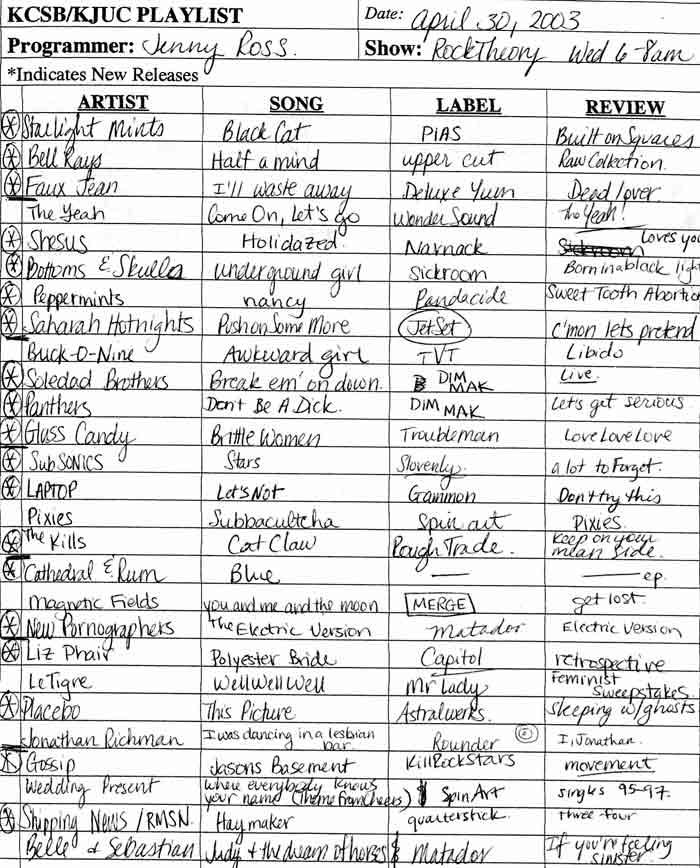 KCSB/KJUC PLAYLIST Date: April 30, 2003
Programmer: Jenny Ross. Show: RockTheory Wed 6-8am
*Indicates New Releases
ARTIST SONG LABEL REVIEW
* Starlight Mints Black Cat PIAS Built on Squares
* Bell Rays Half a mind upper cut Raw Collection.
* Faux Jean I'll waste away Deluxe Yum Dead lover.
The Yeah Come On, Let's go Wonder Sound the Yeah!
* Shesus Holidazed. Narnack loves you
* Bottoms & Skulls underground girl Sickroom Born in a black light
* Peppermints nancy Pandacide Sweet Tooth Abortion
* Saharah Hotnights Push on Some More JetSet C'mon lets pretend
Buck-O-Nine Awkward girl TVT Libido
* Soledad Brothers Break em' on down. DIM MAK Live.
* Panthers Don't Be A Dick. DIM MAK Let's get serious.
* Glass Candy Brittle Women Troubleman Love Love Love
* SubSONICS Stars Slovenly. a lot to Forget.
* LAPTOP Let's Not Gammon Don't try this
Pixies Subbacultcha Spin art Pixies.
* The Kills Cat Claw Rough Trade. Keep on your mean side.
* Cathedral & Rum Blue — — ep.
Magnetic Fields you and me and the moon MERGE get lost.
* New Pornographers The Electric Version Matador Electric Version
* Liz Phair Polyester Bride Capitol retrospective
LeTigre Well Well Well Mr Lady Feminist Sweepstakes.
* Placebo This Picture Astralwerks. Sleeping w/ghosts
Jonathan Richman I was dancing in a lesbian bar. Rounder I, Jonathan.
* Gossip Jasons Basement KillRockStars movement
Wedding Present where everybody knows your name (Theme From Cheers) SpinArt singles 95-97.
* Shipping News /RMSN. Haymaker quarterstick. three-four
Belle & Sebastian Judy & the dream of horses Matador If you're feeling sinister